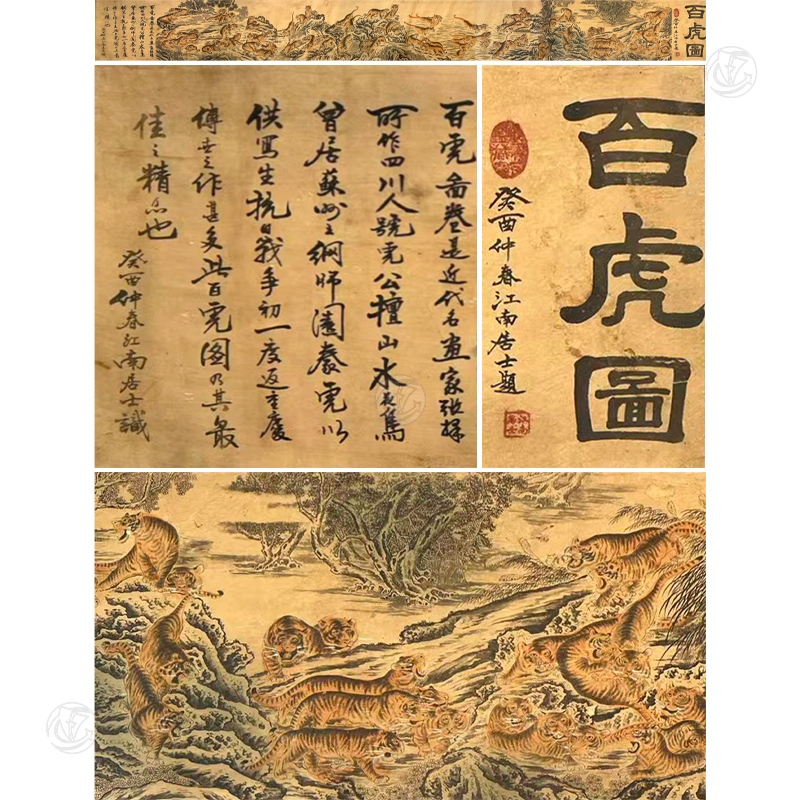 百虎圖
百虎圖
癸酉仲春江南居士題
江南居士
百虎啚卷是近代名畫家張擇
所作四川人號虎公擅山水花鳥
曾居蘇州之網師園養虎以
供寫生抗日戰爭初一度返重慶
傳世之作甚多此百虎图乃其最
佳之精品也
癸酉仲春江南居士識